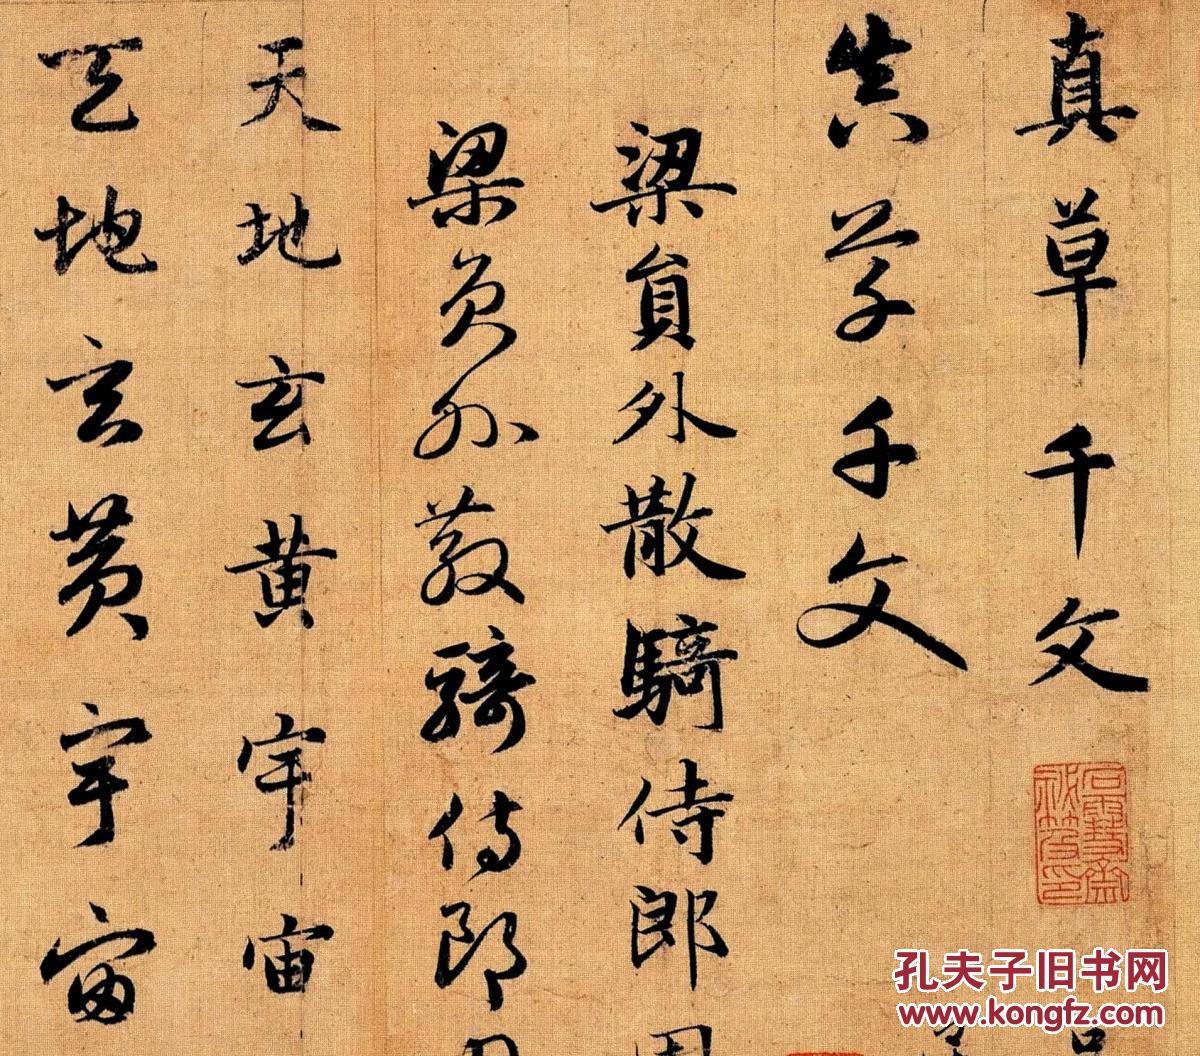 真草千文
真草千文
梁員外散騎侍郎周
梁員外散騎侍郎周
天地玄黃宇宙
天地玄黃宇宙
孔夫子旧书网
www.kongfz.com